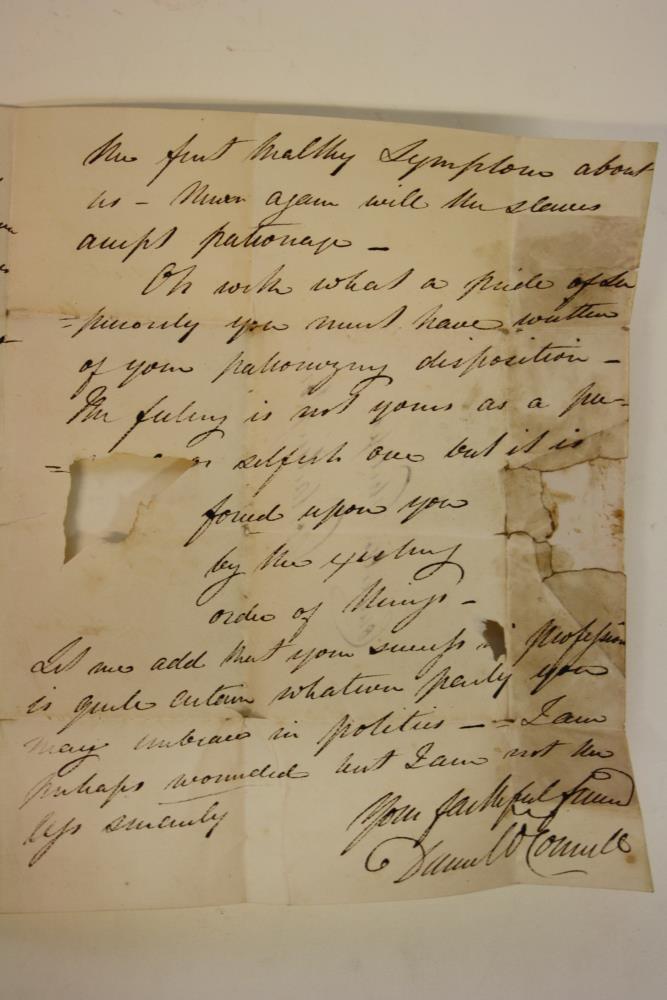 the first healthy Symptom about
us – Never again will the slaves
accept patronage –
Oh with what a pride of Su
=periority you must have written
of your patronizing disposition –
The feeling is not yours as a per–
= or selfish one but it is
forced upon you
by the existing
order of things –
Let me add that your success in profession
is quite certain whatever party you
may embrace in politics – – I am
perhaps wounded but I am not the
less sincerely
Your faithful friend
Daniel O'Connell